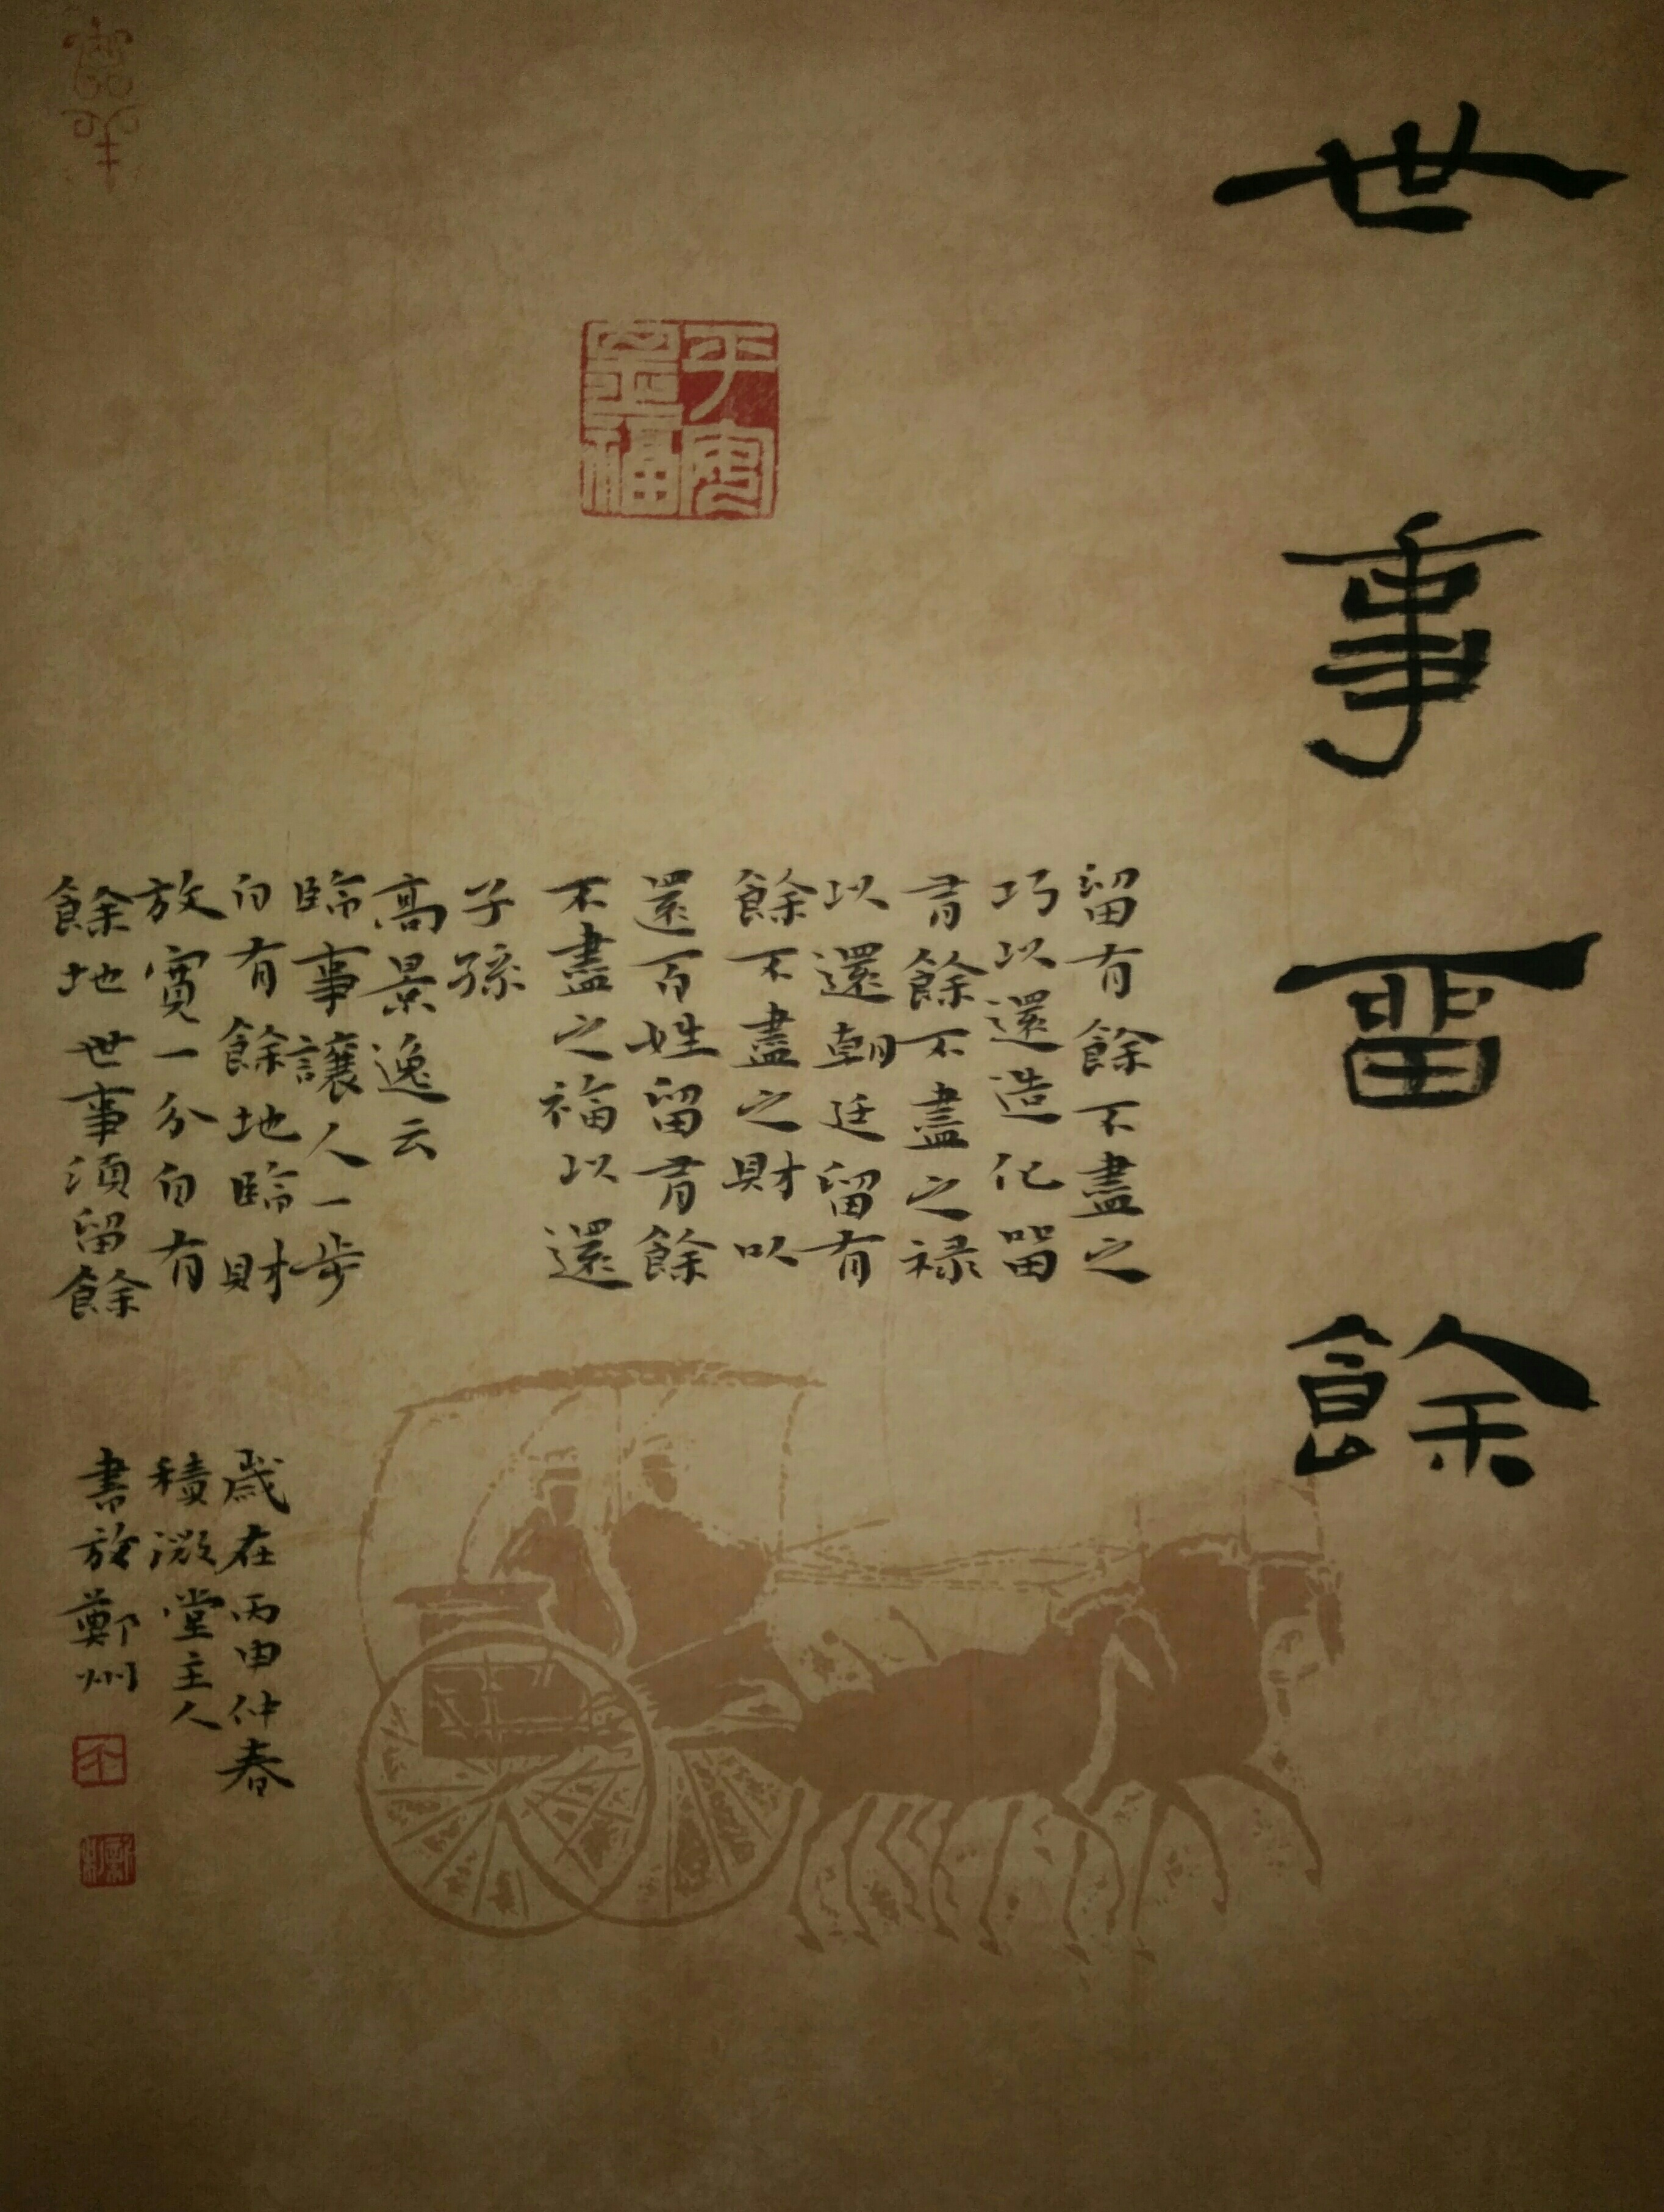 世事畱餘
留有餘不盡之
巧以還造化留
有餘不盡之禄
以還朝廷留有
餘不盡之財以
還百姓留有餘
不盡之福以還
子孫
高景逸云
臨事讓人一步
自有餘地臨財
放寬一分自有
餘地世事須留餘
歲在丙申仲春
積微堂主人
書於鄭州